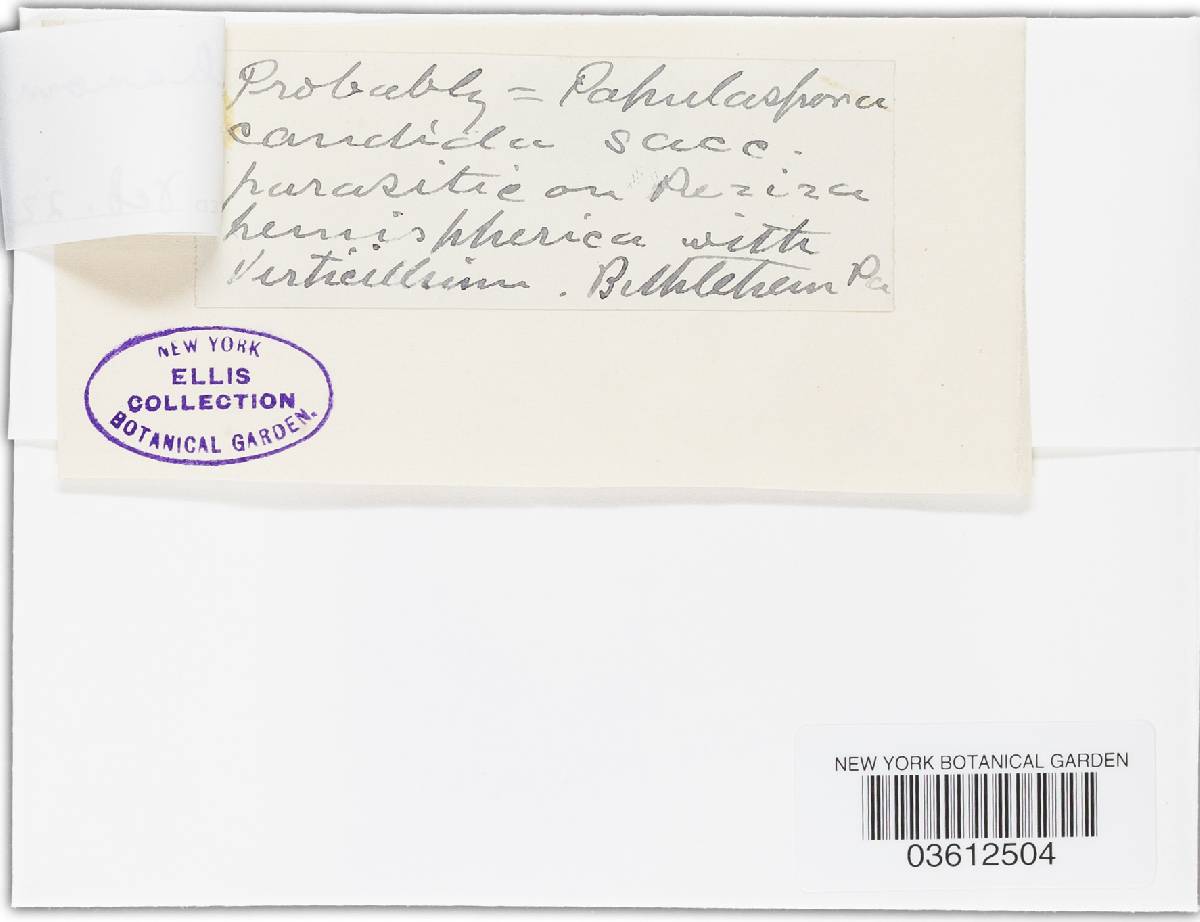 Probably = Papulaspora
candida sacc.
parasitic on Peziza
hemispherica with
Verticillium. Bethlehem Pa
NEW YORK
ELLIS
COLLECTION
BOTANICAL GARDEN.
NEW YORK BOTANICAL GARDEN
03612504